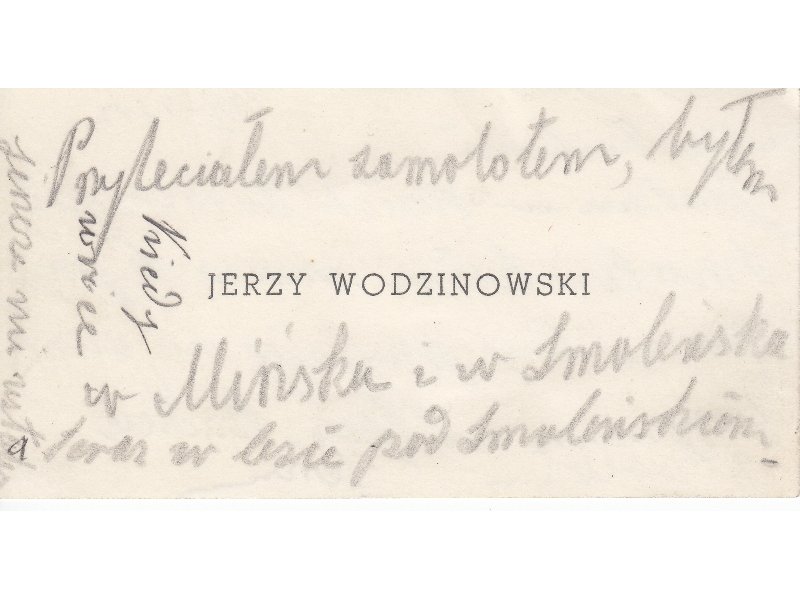 Przyleciałem samolotem, byłem
JERZY WODZINOWSKI
w Mińsku i w Smoleńsku
a teraz w lesie pod Smoleńskiem
Kiedy
wrócę